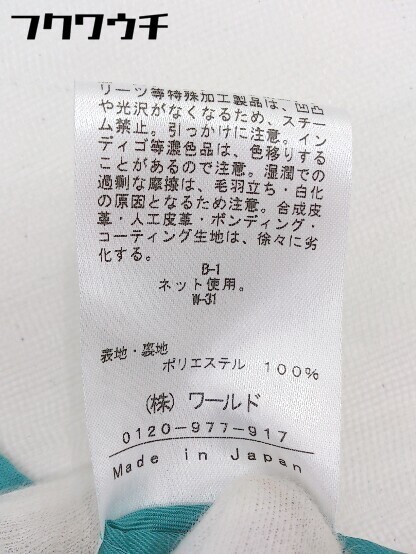 フクワウチ
リーツ等特殊加工製品は、凹凸
や光沢がなくなるため、スチー
ム禁止。引っかけに注意。イン
ディゴ等濃色品は、色移りする
ことがあるので注意。湿潤での
過剰な摩擦は、毛羽立ち・白化
の原因となるため注意。合成皮
革・人工皮革・ボンディング・
コーティング生地は、徐々に劣
化する。
B-1
ネット使用。
W-31
表地・裏地
ポリエステル 100%
(株)ワールド
0120-977-917
Made in Japan